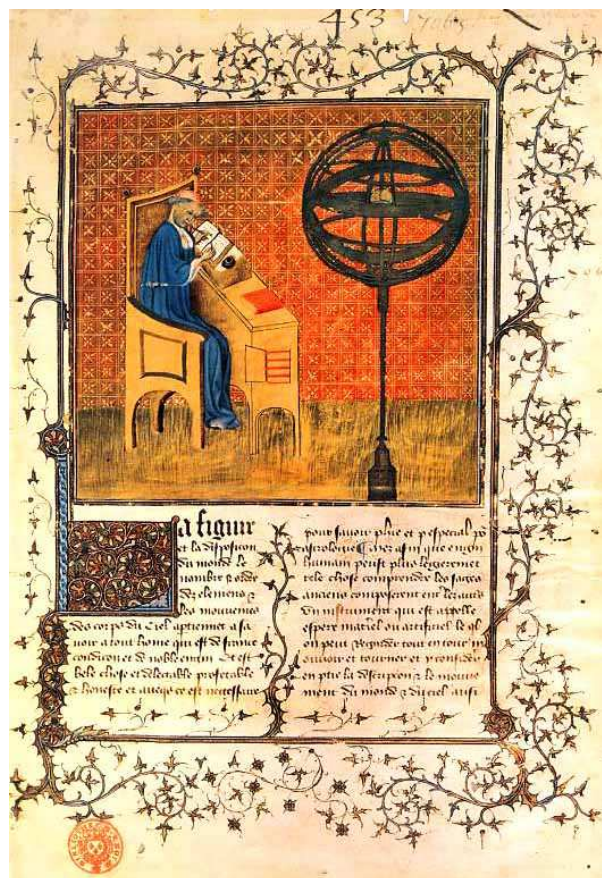 453
a figure
et la disposicion
du monde le
nombre & ordre
des elemens &
les mouvemens
des corps du ciel aptienent a sa
voir a tout home qui est de france
condicion et de noble engin Et est
bele chose et delectable profetable
& honeste et avecqs ce est necessaire
pour savoir phie et p especial po
astrologie afin que engin
humain peust plus legierement
tele chose comprendre les sages
anciens composerent
un instrument qui est appelle
espere materiel ou artificiel le ql
on peut regarder tout entour m
ouvoir et tourner et y considerer
en ptie la descripcion & le mouve
ment du monde & du ciel aussi